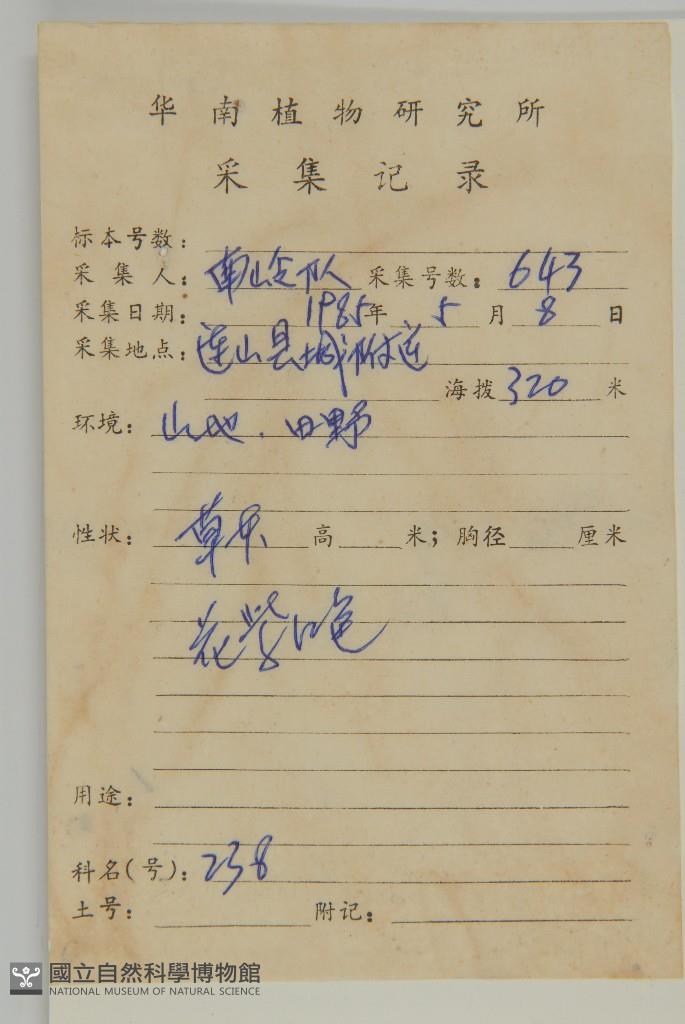 华南植物研究所
采集记录
标本号数：
采集人：南岭队 采集号数：643
采集日期：1985年5月8日
采集地点：连山县城附近
海拨320米
环境：山地．田野
性状：草本 高 米；胸径 厘米
花紫红色
用途：
科名(号)：238
土号： 附记：
國立自然科學博物館
NATIONAL MUSEUM OF NATURAL SCIENCE